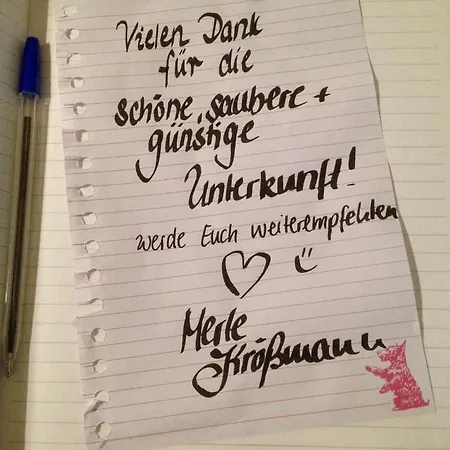 Vielen Dank
für die
schöne, saubere +
günstige
Unterkunft!
werde Euch weiterempfehlen
Merle
Kroßmann